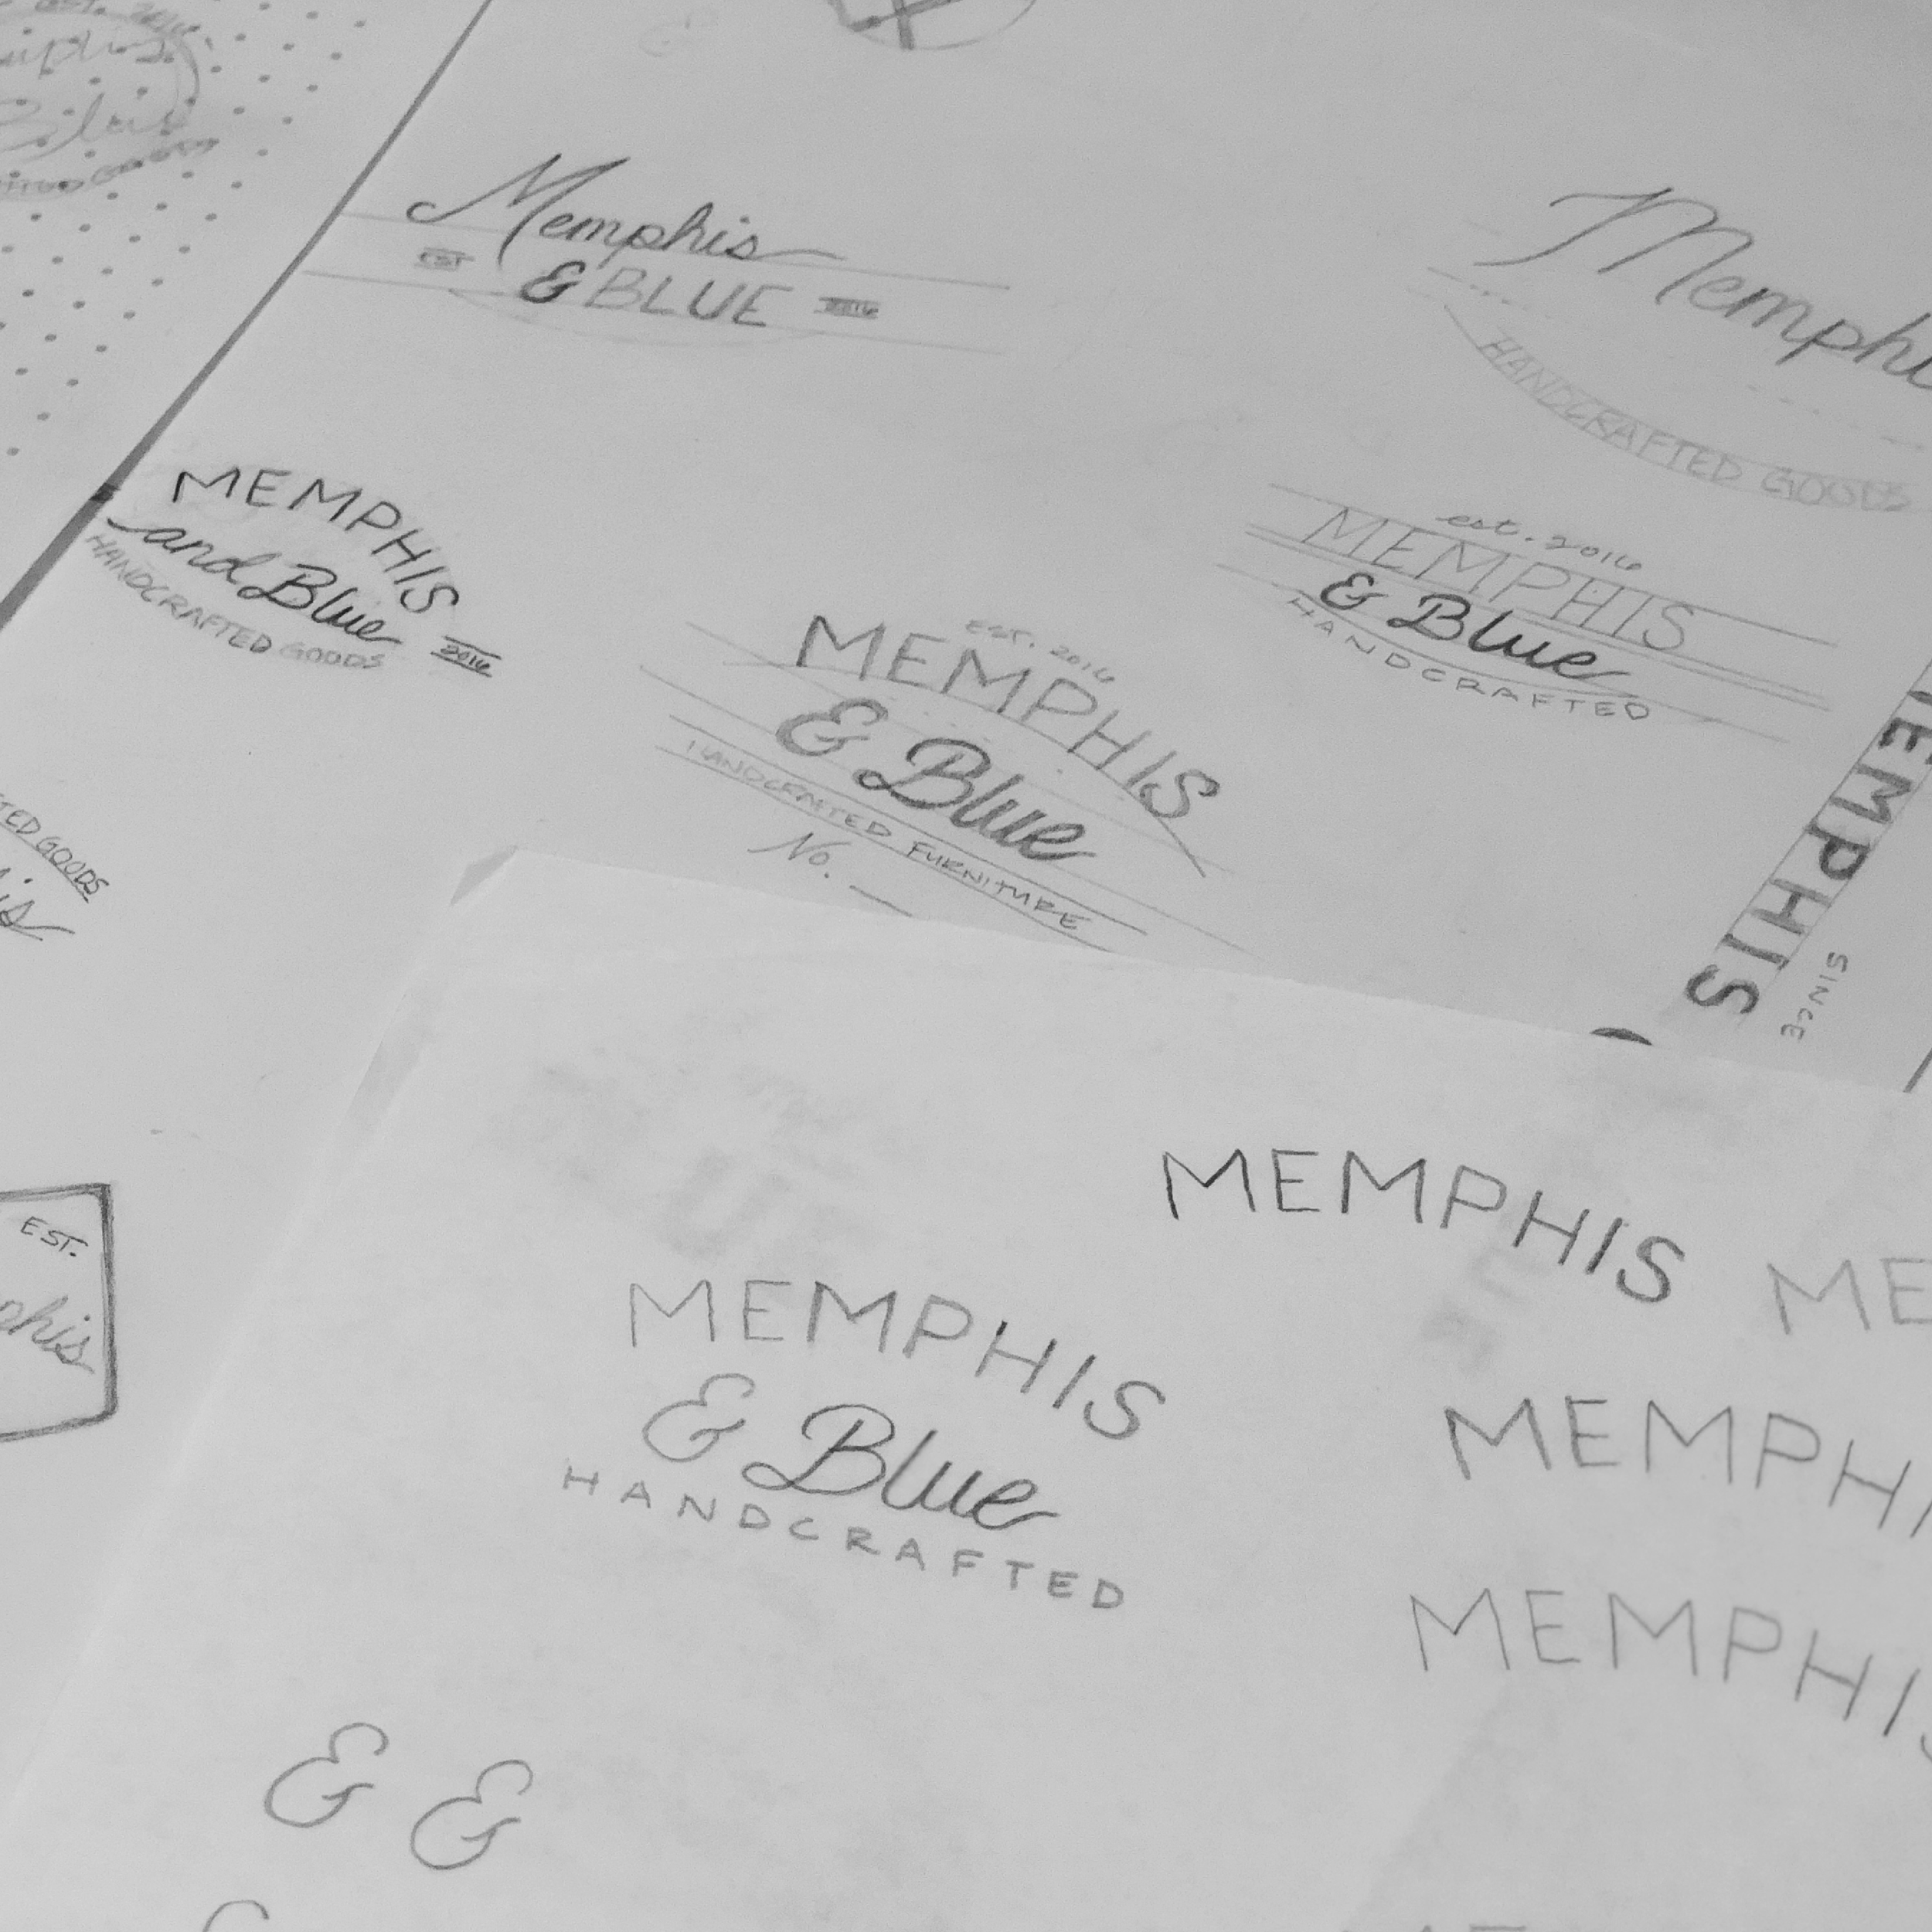 Memphis
EST
& BLUE 2016
Memphi
HANDCRAFTED GOODS
MEMPHIS
and Blue
HANDCRAFTED GOODS 2016
est. 2016
MEMPHIS
& Blue
HANDCRAFTED
EST. 2016
MEMPHIS
& Blue
HANDCRAFTED FURNITURE
No.
TED GOODS
is
EMPHIS
SINCE
EST.
phis
MEMPHIS
ME
MEMPHIS
& Blue
HANDCRAFTED
MEMPHI
MEMPHIS
& &